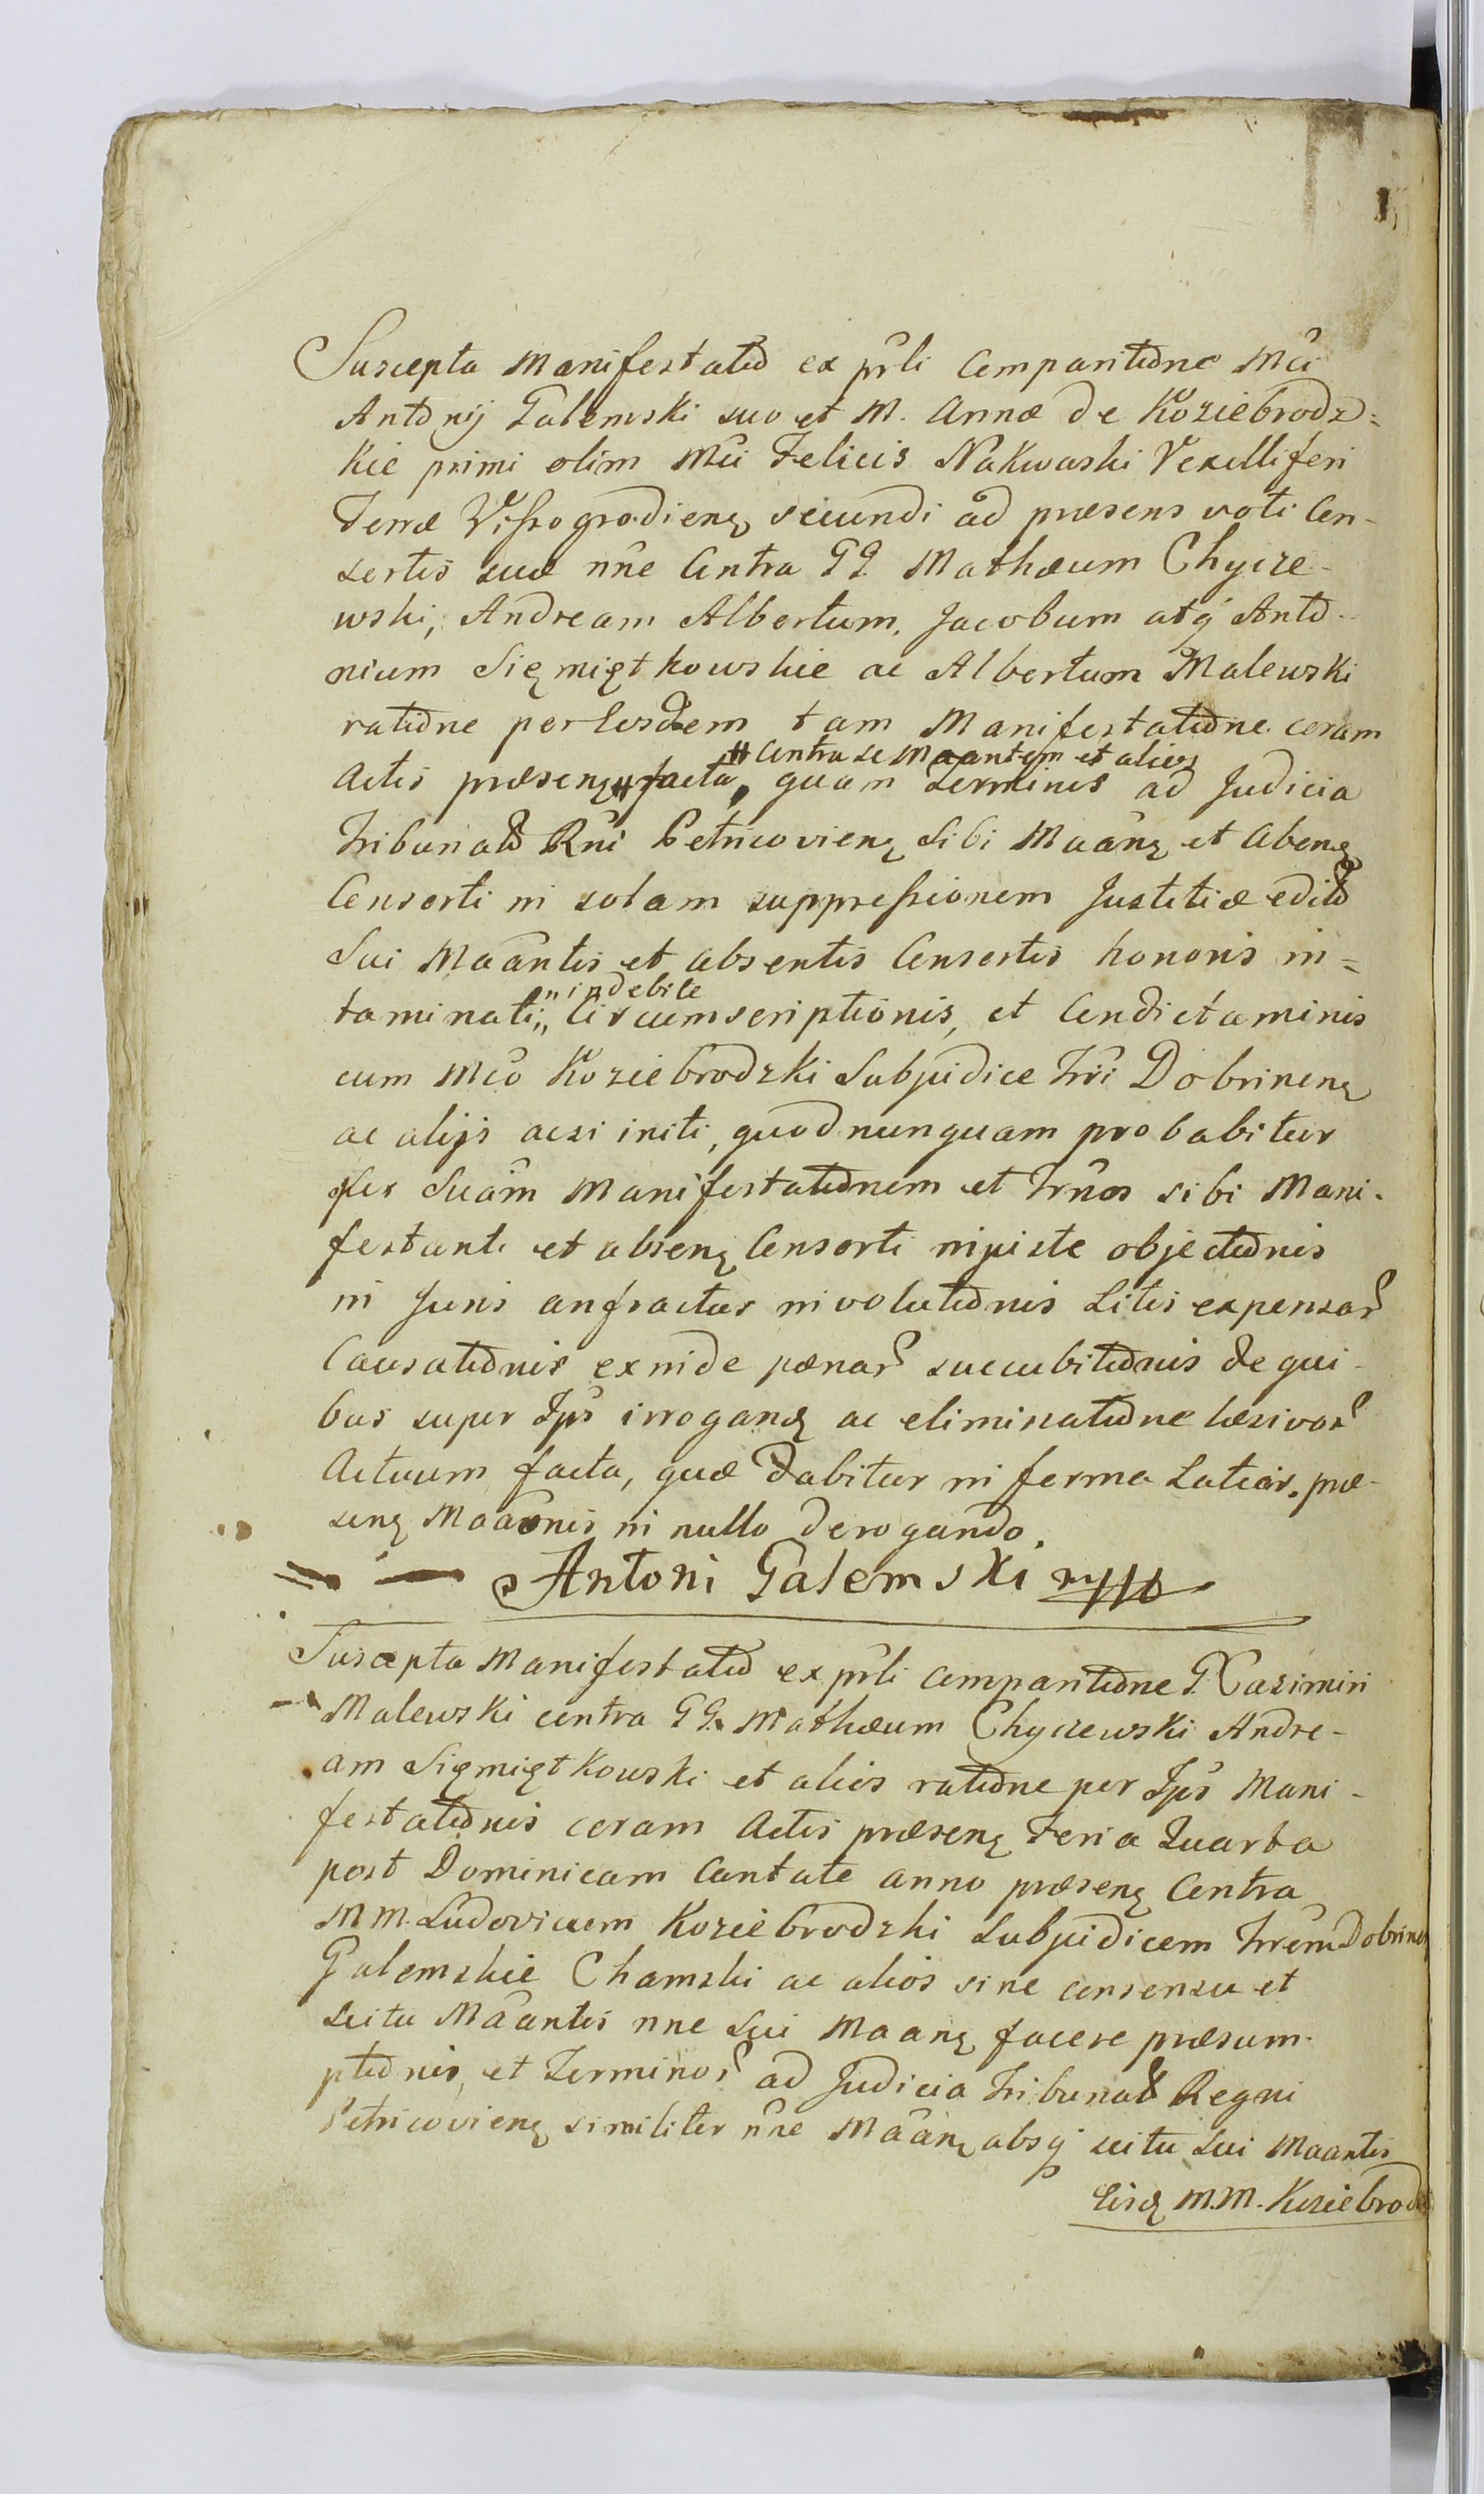 Suscepta Manifestatio ex prli Comparitione Mci
Antonij Galemski suo et M. Annæ de Koziebrodz=
kie primi olim Mci Felicis Nakwaski Vexilliferi
Terræ Vissogrodienꝫ secundi ad præsens voti Con-
sortis suæ nne Contra GG. Mathæum Chycze-
wski, Andream Albertum, Jacobum atq́ Anto-
nium Siemiątkowskie ac Albertum Malewski
ratione per Eosdem tam Manifestatione coram
Contra se Maantem et alios
Actis præsenꝫ facta, quam Terminis ad Judicia
Tribunal Rni Petricovienꝫ Sibi Maanꝫ et absenꝫ
Consorti in solam suppressionem Justitiæ edit
Sui Maantis et absentis Consortis honoris in=
indebite
taminati, Circumscriptionis, et Condictaminis
cum Mco Koziebrodzki Subjudice Trri Dobrinenꝫ
ac alijs acsi initi, quod nunquam probabitur
per Suam Manifestationem et Trnos sibi Mani-
festanti et absenꝫ Consorti injuste objectionis
in Juris anfractus involutionis Litis expensar
Causationis exinde pænar succubitionis de qui-
bus super Ips irroganꝫ ac eliminatione læsivor
Actuum facta, quæ Dabitur in forma Latior. præ-
senꝫ Maaonis in nullo derogando.
Antoni Galemski mpp
Suscepta Manifestatio ex prli Comparitione G. Casimiri
Malewski contra GG. Mathæum Chyczewski Andre-
am Siemiątkowski et alios ratione per Ips Mani-
festationis coram Actis præsenꝫ Feria Quarta
post Dominicam Cantate anno præsenꝫ Contra
MM. Ludovicum Koziebrodzki Subjudicem Trrem Dobrinen
Galemskie Chamski ac alios sine consensu et
scitu Maantis nne Sui Maanꝫ facere præsum-
ptionis, et Terminor ad Judicia Tribunal Regni
Petricovienꝫ similiter nne Maanꝫ absq́ scitu Sui Maantis
Eisꝫ M.M. Koziebrod